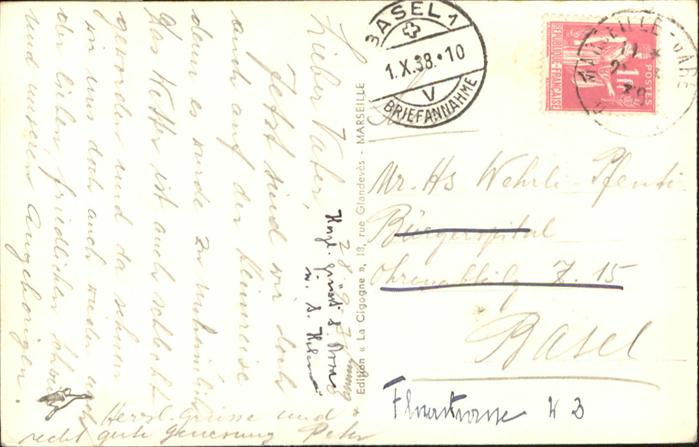 Lieber Vater,
Jetzt sind wir doch
auch auf der Heimreise
denn es wurde zu unheimlich
Das Wetter ist auch schlecht
geworden und da sehnen
wir uns doch auch wieder nach
der lieben, friedlichen Schweiz
und unseren Angehörigen.
Herzl. Grüsse und
recht gute Genesung Peter
Herzl.
Edition « La Cigogne », 18, rue Glandevès - MARSEILLE
BASEL 1
1.X.38.-10
V
BRIEFANNAHME
MARSEILLE - GARE
POSTES
REPUBLIQUE FRANÇAISE
Mr. Hs Wehrli-Pfenti
Bürgerspital
Z. 15
Basel